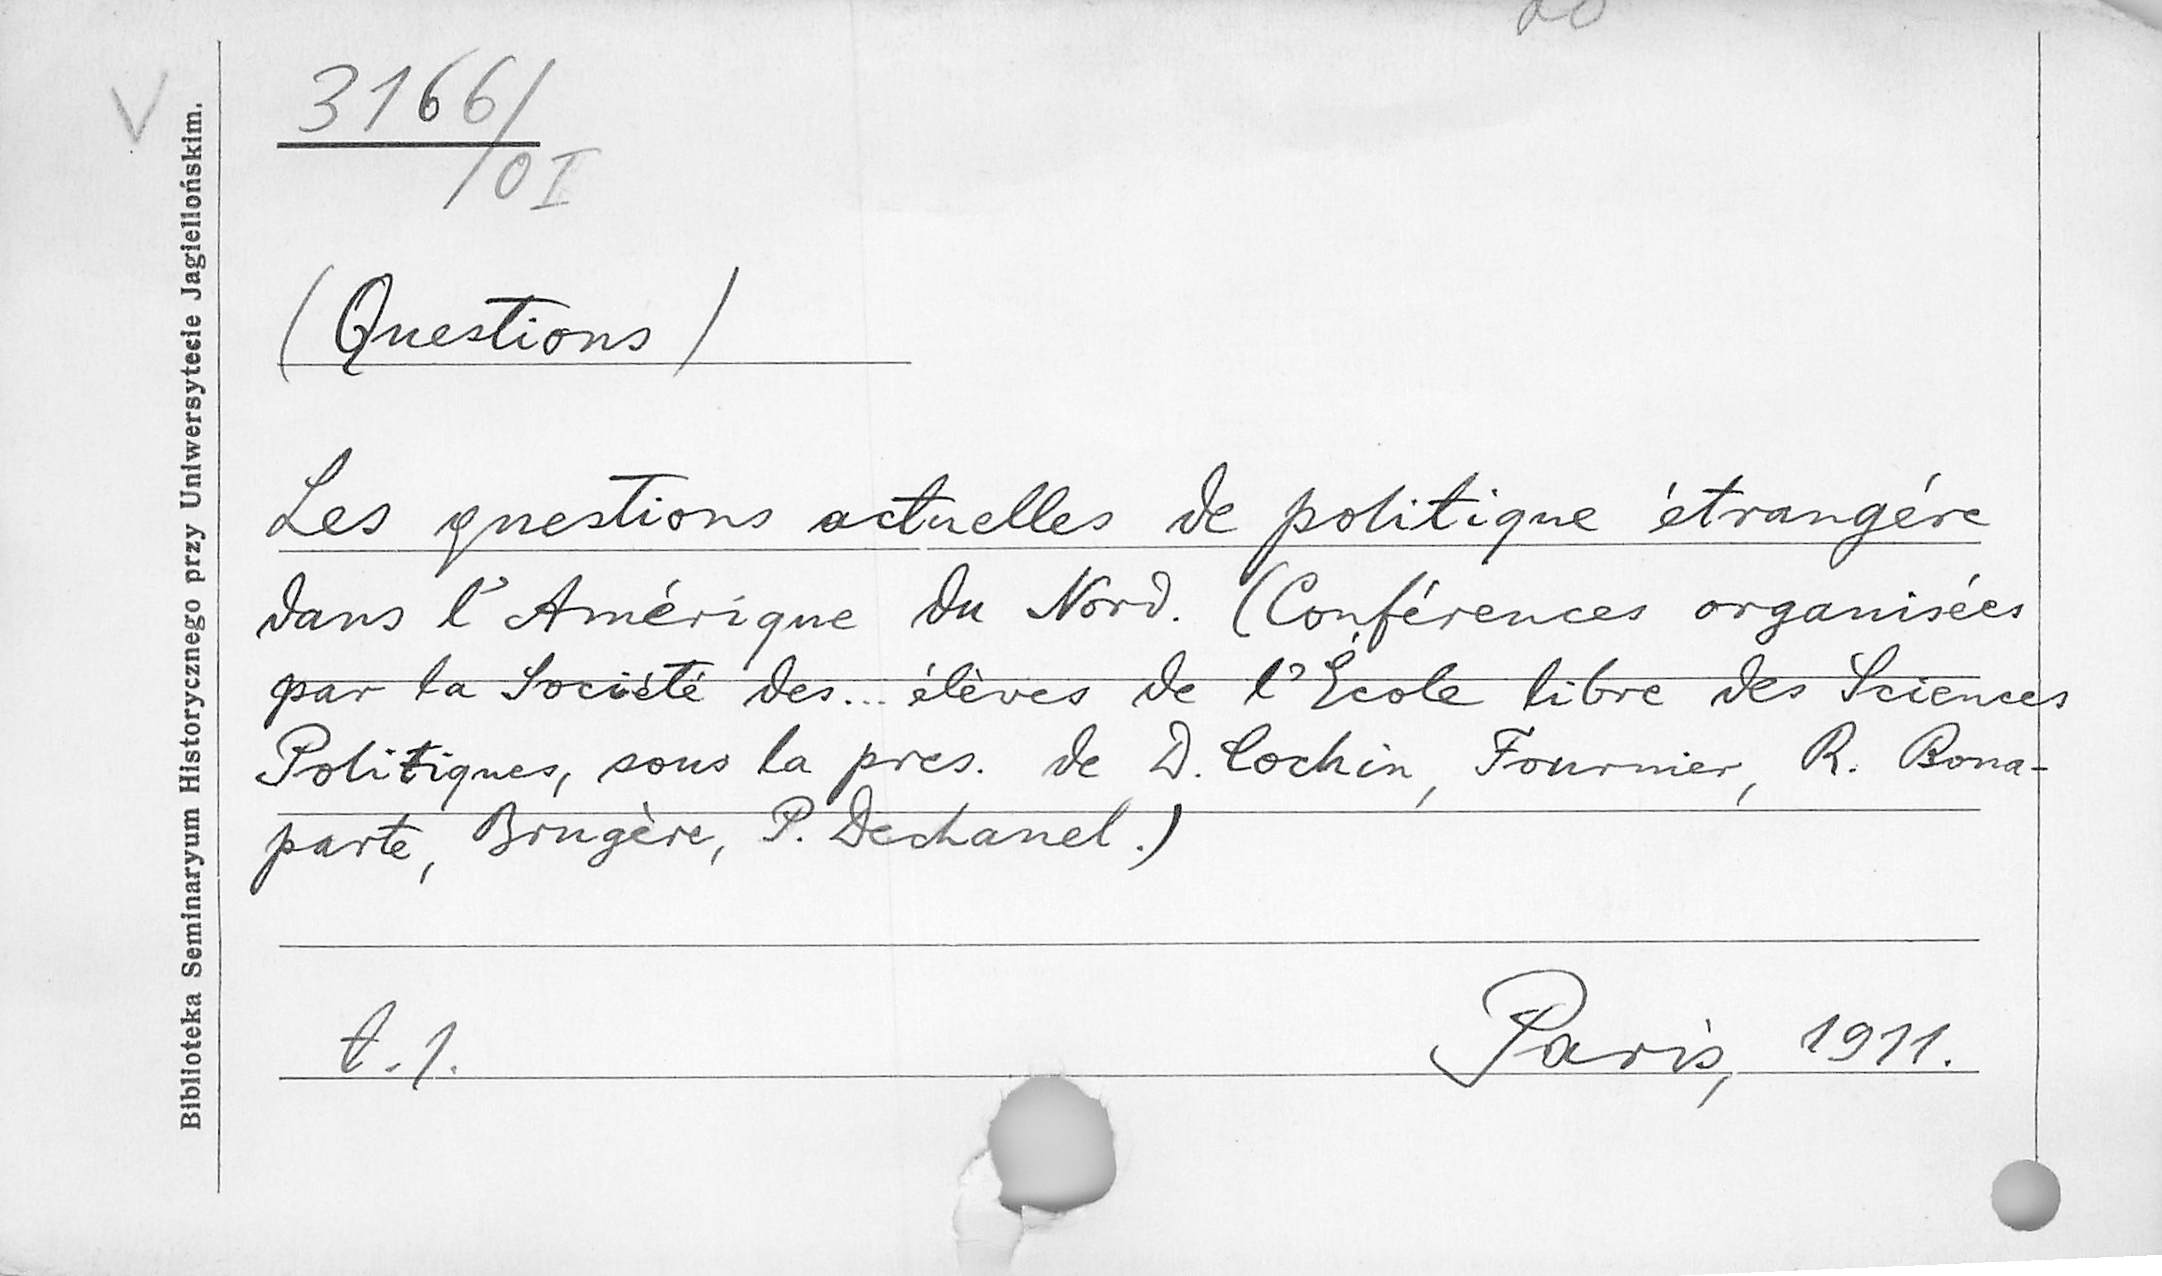 V
3166/
/OI
(Questions)
Les questions actuelles de politique étrangére
dans l'Amérique du Nord. (Conférences organisées
par la Société des... élèves de l'École libre des Sciences
Politiques, sous la pres. de D. Cochin, Fournier, R. Bona-
parte, Brugère, P. Dechanel.)
t. 1.
Paris, 1911.
Biblioteka Seminaryum Historycznego przy Uniwersytecie Jagiellońskim.